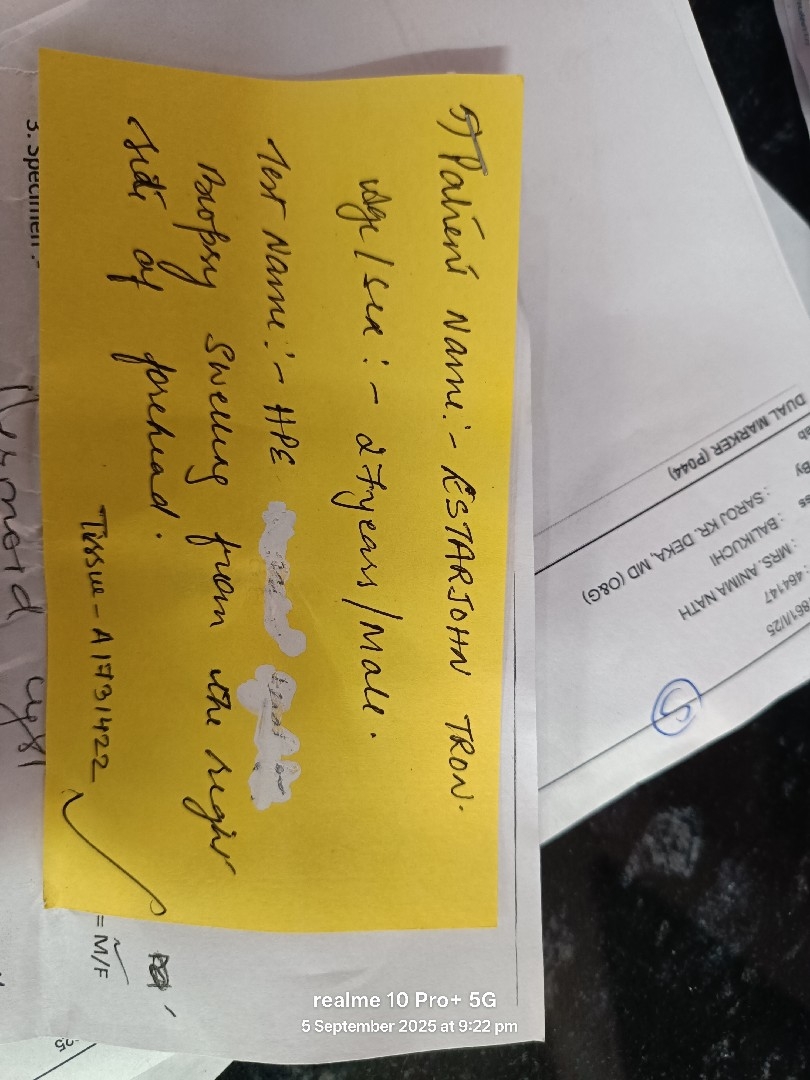 5) Patient Name:- RSTARJOHN TRON.
Age/sex:- 27years/Male.
Test Name:- HPE
Biopsy swelling from the right
side of forehead.
Tissue - A1731422
3. Specimen:-
cyst
= M/F
DUAL MARKER (P044)
: SAROJ KR. DEKA, MD (O&G)
: BALIKUCHI
: MRS. ANIMA NATH
: 464147
861/I/25
5
realme 10 Pro+ 5G
5 September 2025 at 9:22 pm